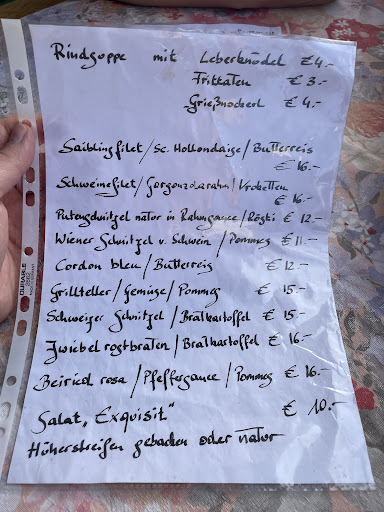 Rindsuppe mit Leberknödel € 4.-
Frittaten € 3.-
Grießnockerl € 4.-
Saiblingfilet / Sc. Hollondaise / Butterreis
€ 16.-
Schweinefilet / Gorgonzolarahm / Kroketten
€ 16.-
Putenschnitzel natur in Rahmsauce / Rösti € 12.-
Wiener Schnitzel v. Schwein / Pommes € 11.-
Cordon bleu / Butterreis € 12.-
Grillteller / Gemüse / Pommes € 15.-
Schweizer Schnitzel / Bratkartoffel € 15.-
Zwiebelrostbraten / Bratkartoffel € 16.-
Beiried rosa / Pfeffersauce / Pommes € 16.-
Salat „Exquisit" € 10.-
Hühnerstreifen gebacken oder natur
DURABLE